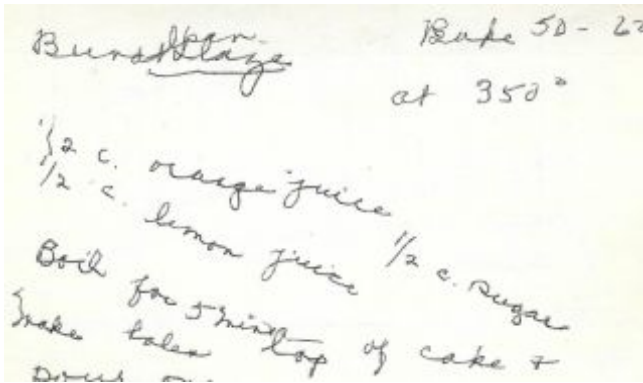 Bundt pan
Glaze
Bake 50 - 6
at 350°
1/2 c. orange juice
1/2 c. lemon juice
1/2 c. sugar
Boil for 5 mins
Make holes top of cake &
pour